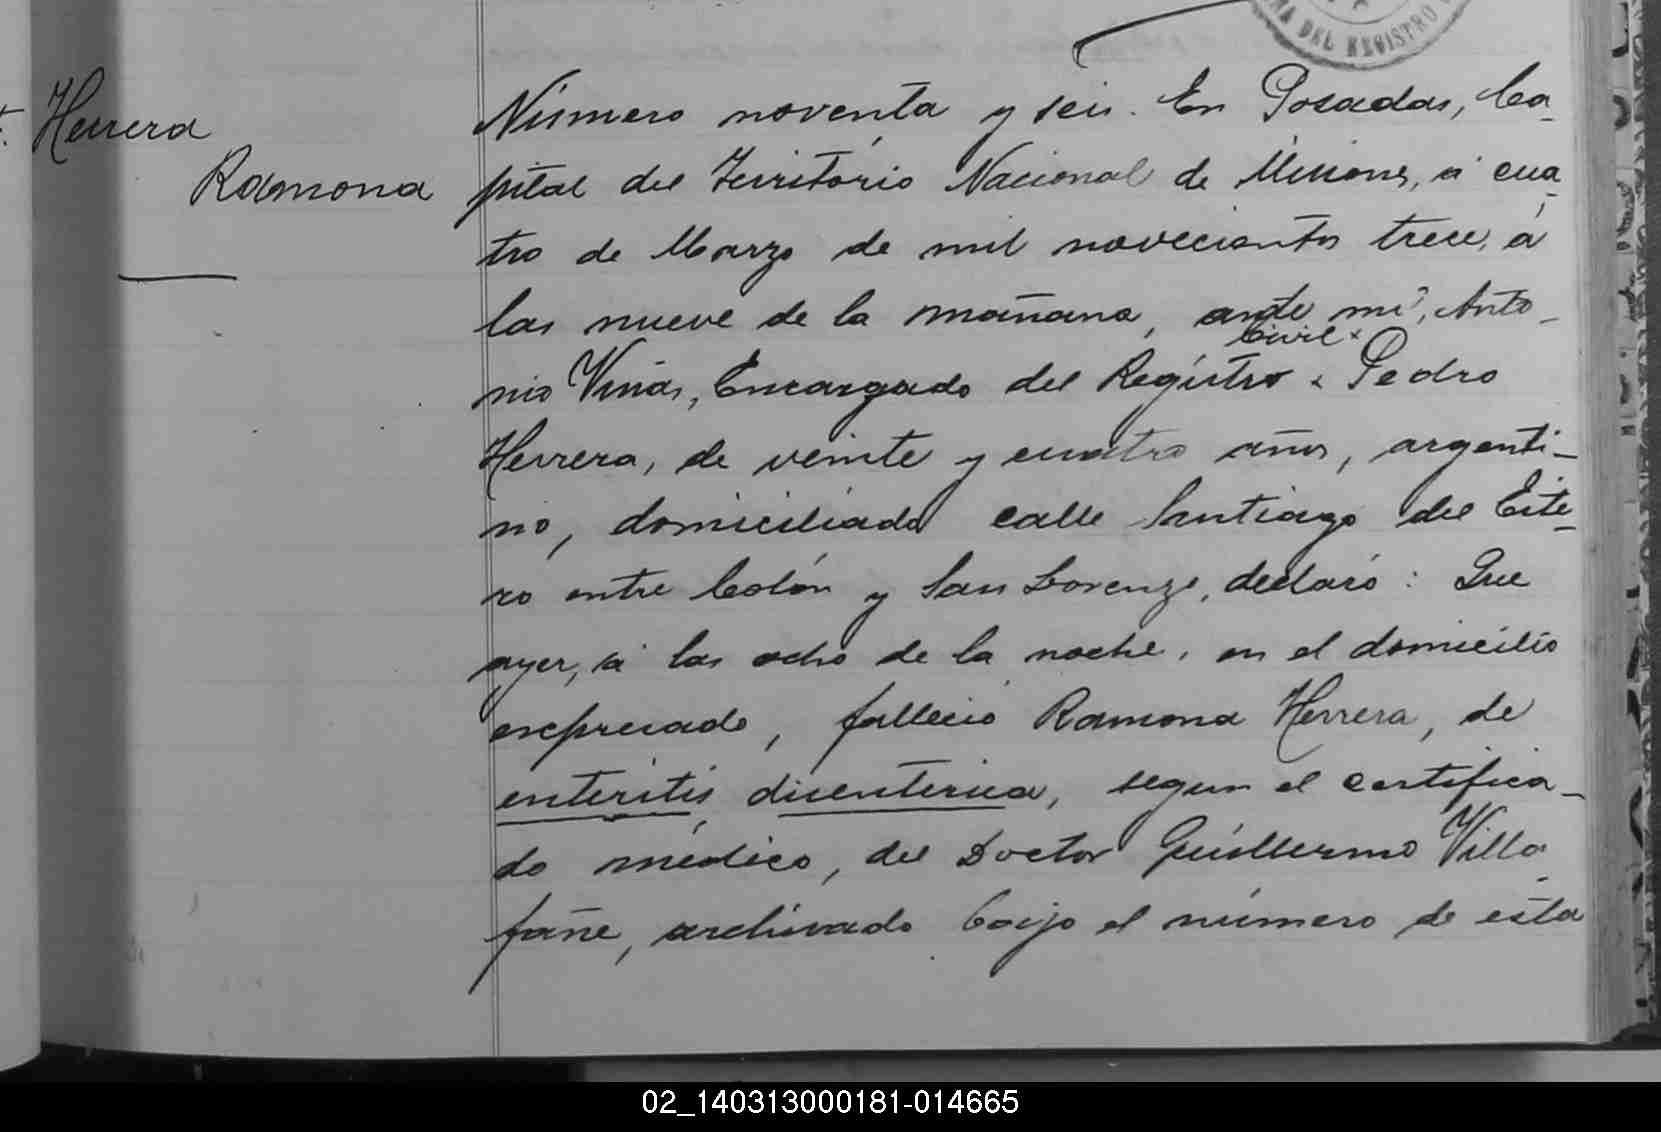 NA DEL REGISTRO
Herrera
Ramona
Número noventa y seis. En Posadas, Ca-
pital del Territorio Nacional de Misiones, á cua-
tro de Marzo de mil novecientos trece, á
las nueve de la mañana, ante mi, Anto-
Civil x
nio Viñas, Encargado del Registro x Pedro
Herrera, de veinte y cuatro años, argenti-
no, domiciliado calle Santiago del Este-
ro entre Colón y San Lorenzo, declaró: Que
ayer, á las ocho de la noche, en el domicilio
expresado, falleció Ramona Herrera, de
enteritis disenterica, segun el certifica-
do médico, del Doctor Guillermo Villa-
fañe, archivado bajo el número de esta
02_140313000181-014665